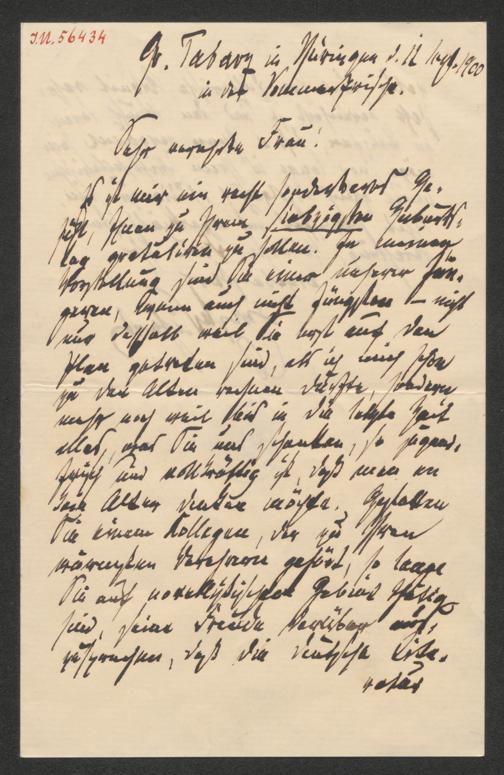 J.N. 56434
Gr. Tabarz in Thüringen d. 11 Sept. 1900
in der Sommerfrische.
Sehr verehrte Frau!
Es ist mir ein recht sonderbares Ge-
fühl, Ihnen zu Ihrem siebzigsten Geburts-
tag gratuliren zu sollen. In meiner
Vorstellung sind Sie einer unserer Jün-
geren, wenn auch nicht Jüngsten – nicht
nur deshalb weil Sie erst auf den
Plan getreten sind, als ich mich schon
zu den Alten rechnen durfte, sondern
mehr noch weil bis in die letzte Zeit
alles, was Sie uns schenken, so jugend-
frisch und vollkräftig ist, daß man an
kein Alter denken möchte. Gestatten
Sie einem Kollegen, der zu Ihren
wärmsten Verehrern gehört, so lange
Sie auf novellistischem Gebiet thätig
sind, seine Freude darüber aus-
zusprechen, daß die deutsche Lite-
ratur